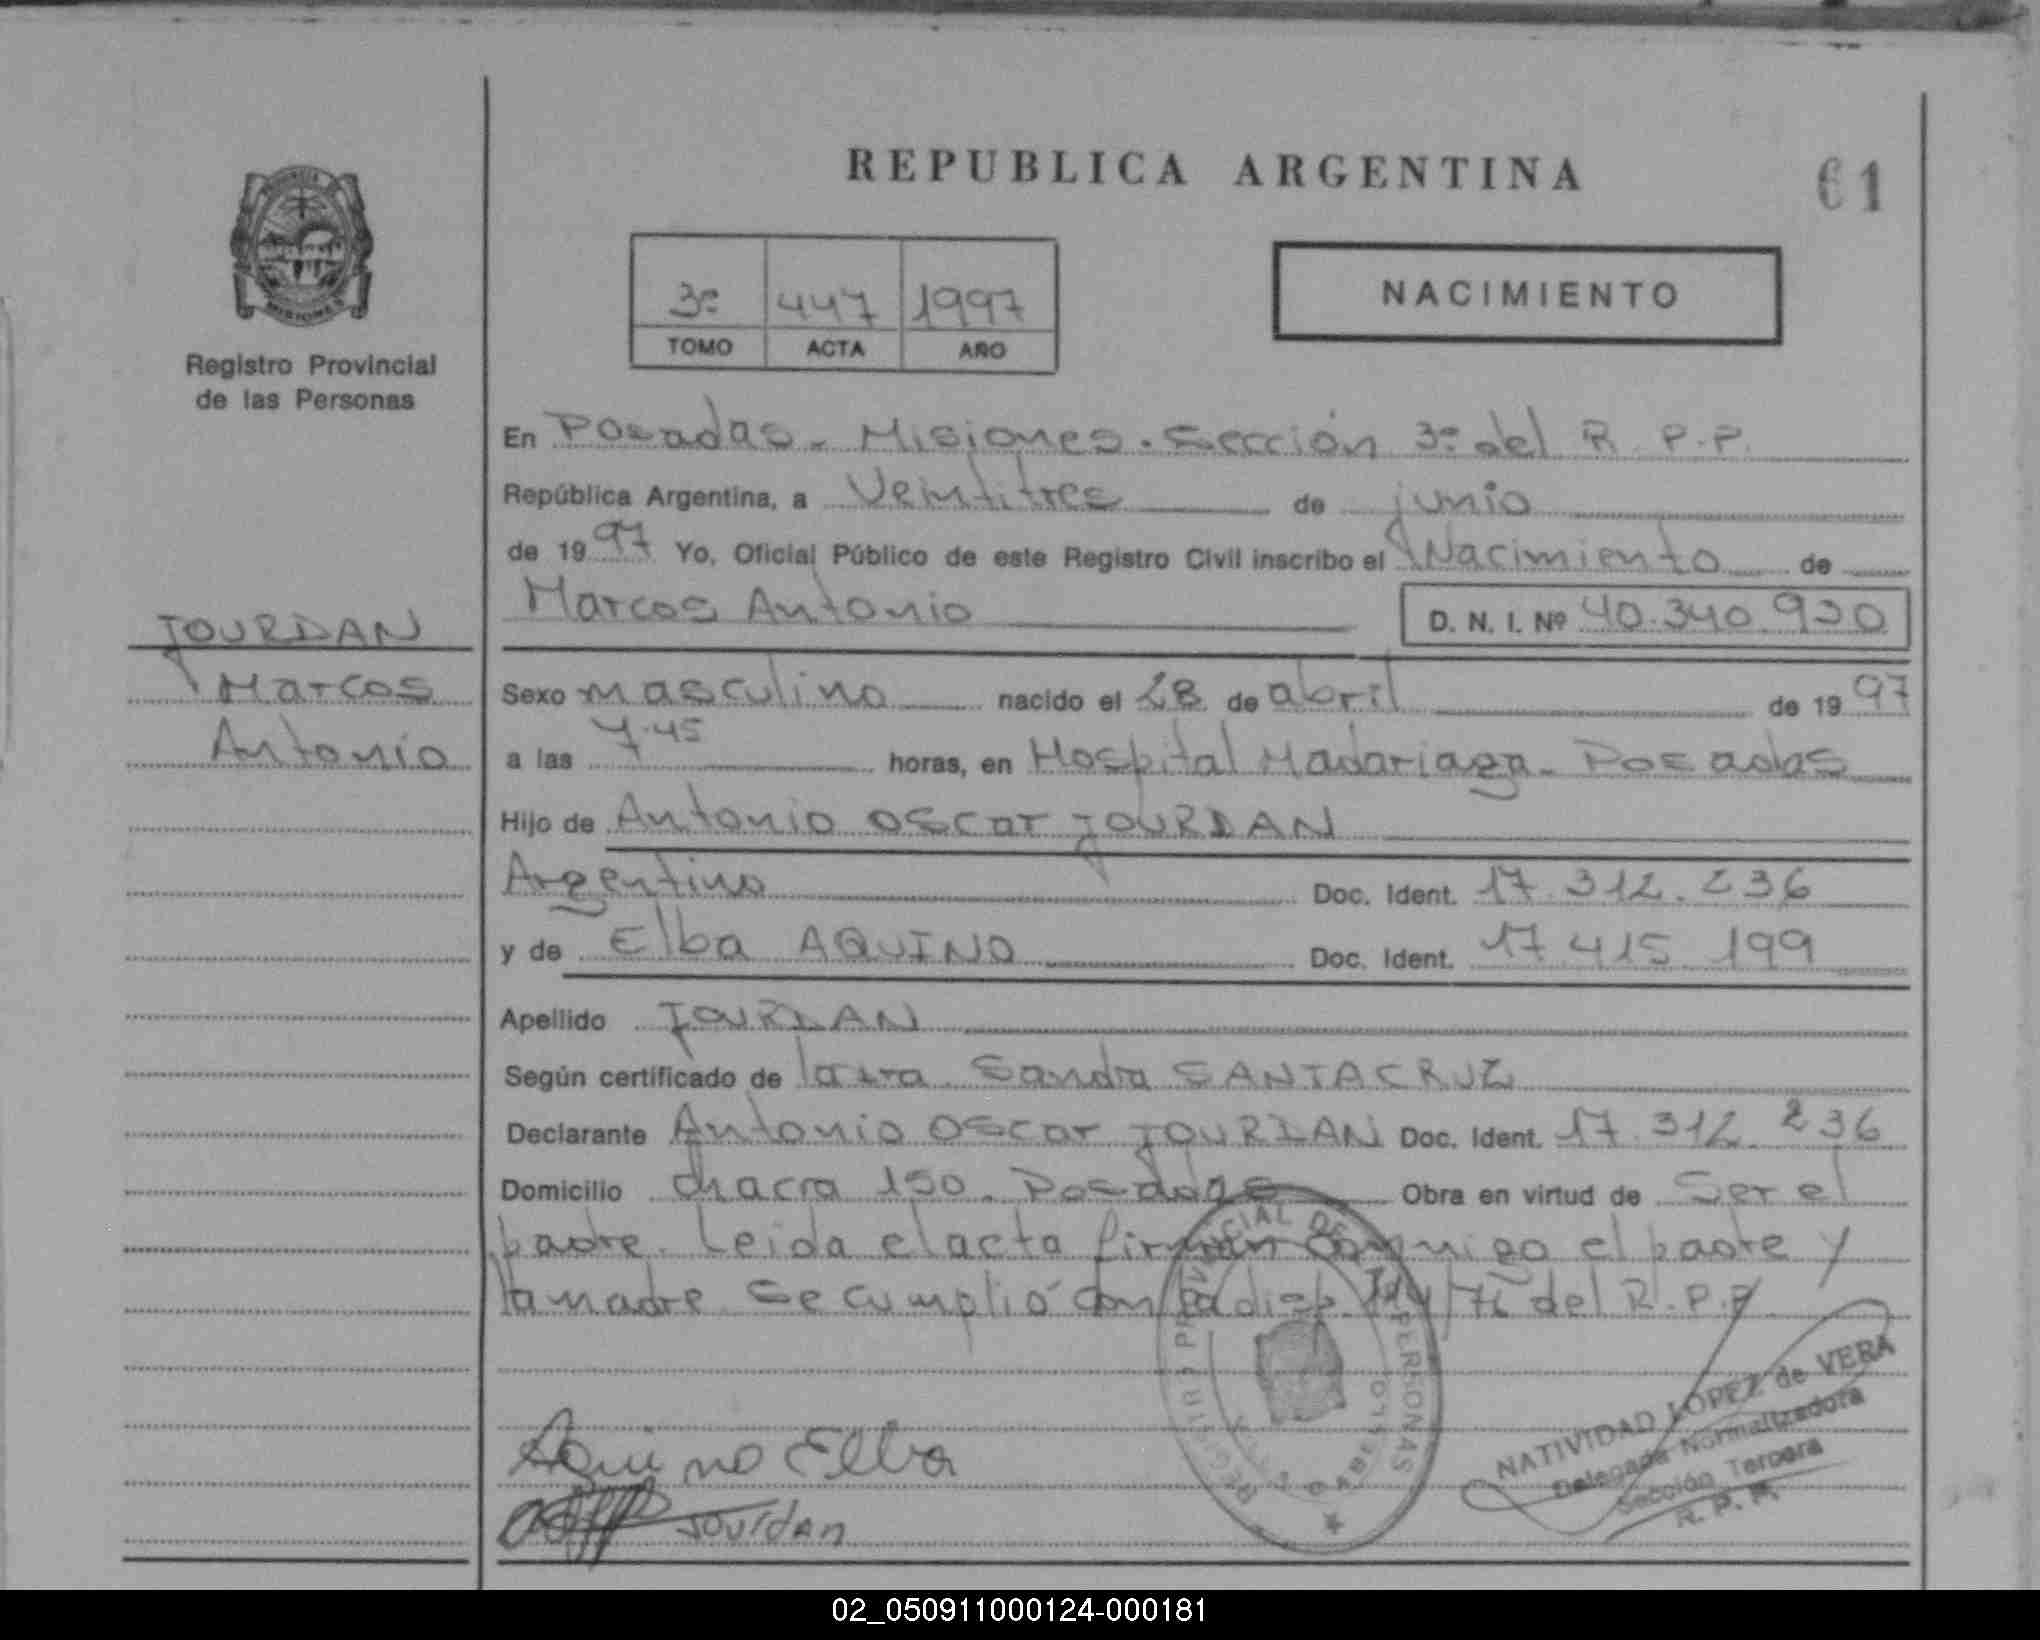 REPUBLICA ARGENTINA
61
MISIONES
Registro Provincial
de las Personas
3ª 447 1997
TOMO ACTA AÑO
NACIMIENTO
JOURDAN
Marcos
Antonio
En Posadas - Misiones - Sección 3ª del R.P.P.
República Argentina, a Veintitres de junio
de 1997 Yo, Oficial Público de este Registro Civil inscribo el Nacimiento de
Marcos Antonio D. N. I. Nº 40.340.920
Sexo masculino nacido el 28 de abril de 1997
a las 7.45 horas, en Hospital Madariaga - Posadas
Hijo de Antonio Oscar JOURDAN
Argentino Doc. Ident. 17.312.236
y de Elba AQUINO Doc. Ident. 17.415.199
Apellido JOURDAN
Según certificado de Sandra SANTACRUZ
Declarante Antonio Oscar JOURDAN Doc. Ident. 17.312.236
Domicilio chacra 150. Posadas Obra en virtud de Ser el
padre. Leida el acta firman conmigo el padre y
la madre. Se cumplió con la disp. del R.P.P.
REGISTRO PROVINCIAL DE LAS PERSONAS
GABELLO
Aquino Elba
Jourdan
NATIVIDAD LOPEZ de VERA
Delegada Normalizadora
Sección Tercera
R. P. P.
02_050911000124-000181